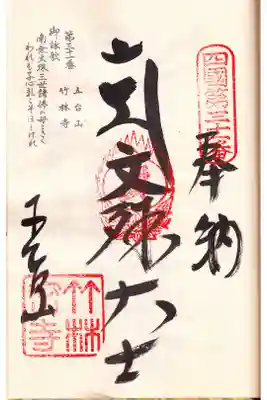 四國第三十一番
奉納
文殊大士
第三十一番
五台山
竹林寺
御詠歌
南無文殊三世諸佛の母ときく
われも子なれば乳こそほしけれ
五台山
竹林寺